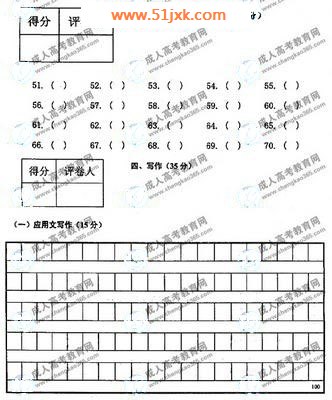 www.51jxk.com
得分 评
51. ( ) 52. ( ) 53. ( ) 54. ( ) 55. ( )
56. ( ) 57. ( ) 58. ( ) 59. ( ) 60. ( )
61. ( ) 62. ( ) 63. ( ) 64. ( ) 65. ( )
66. ( ) 67. ( ) 68. ( ) 69. ( ) 70. ( )
得分 评卷人
四、写作(35分)
(一)应用文写作(15分)
100
成人高考教育网
www.chengkao365.com